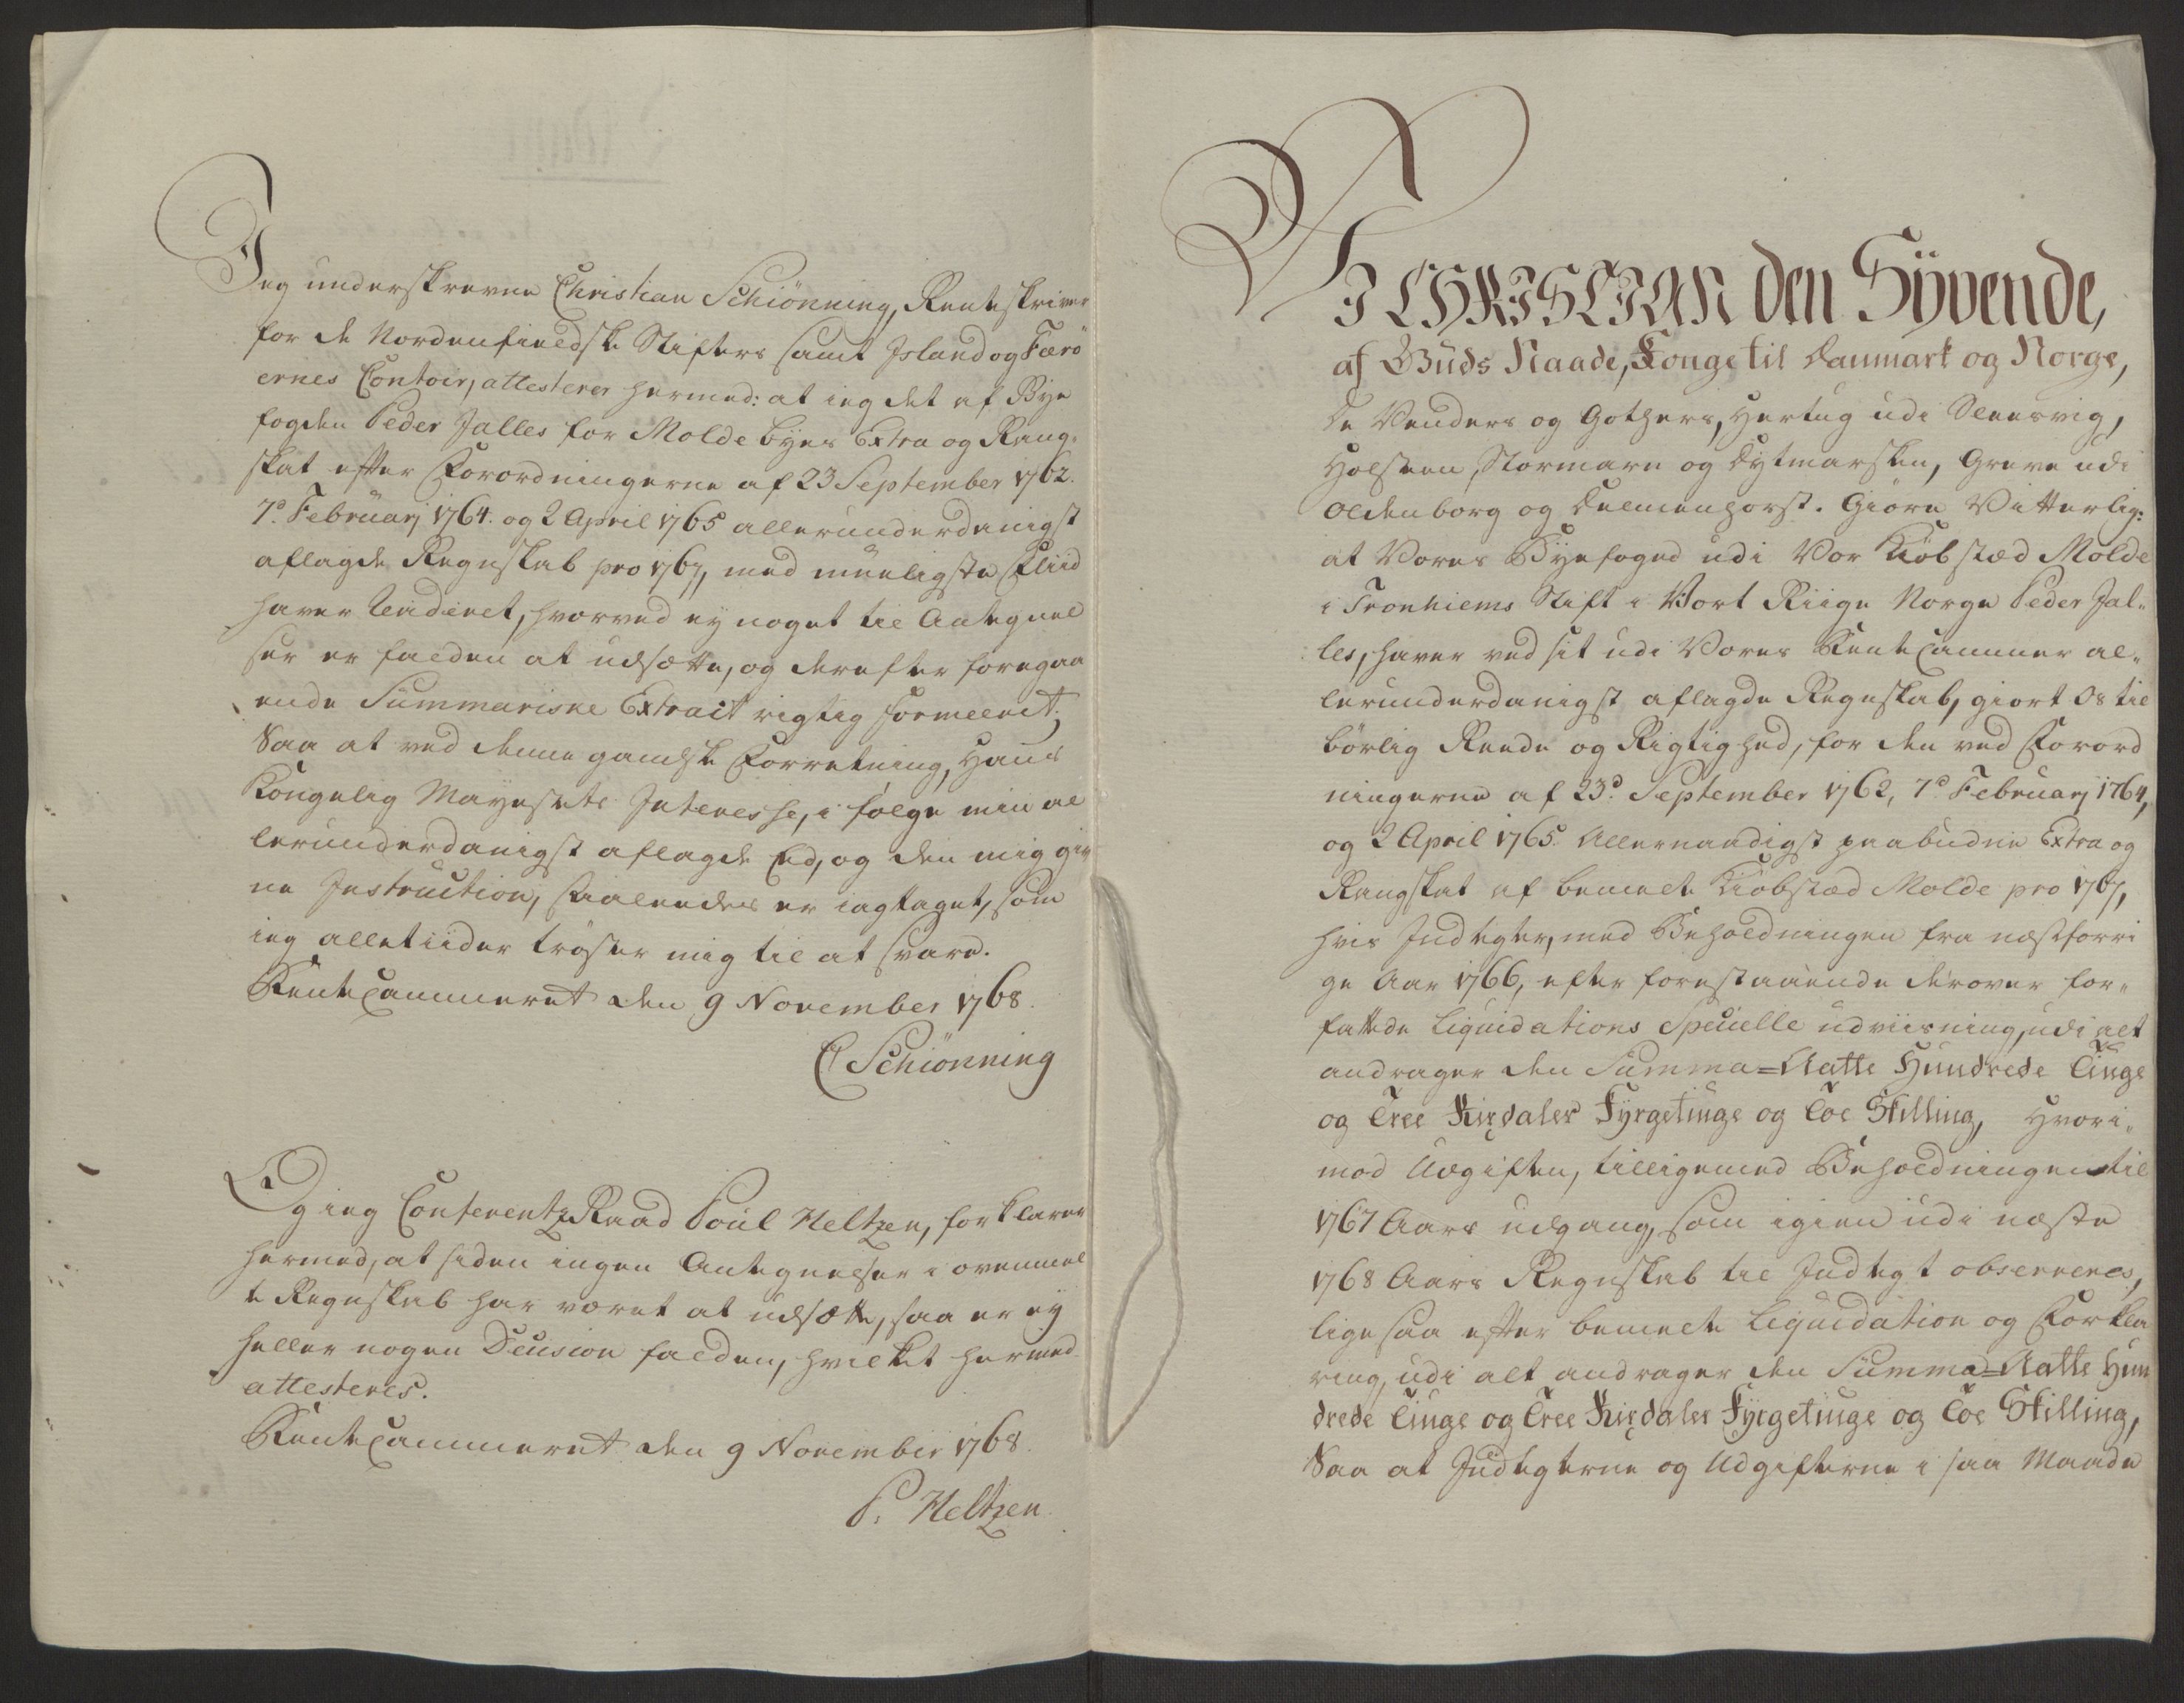 Jeg underskrevne Christian Schiönning, Renteskriver
for de Nordenfieldske Stifters samt Island og Færö
ernes Contoir, attesterer hermed: at ieg det af Bye
fogden Peder Jalles for Molde byes Extra og Rang-
skat efter Forordningerne af 23 September 1762.
7de Februarj 1764. og 2 April 1765 allerunderdanigst
aflagde Regnskab pro 1767, med mueligste Fliid
haver revideret, hvorved ey noget til Antegnel
ser er falden at udsætte, og derefter foregaa
ende Summariske Extract rigtig formeerit;
Saa at ved denne gandske Forretning, Hans
Kongelig Mayestets Interesse, i følge min al
lerunderdanigst aflagde Eed, og den mig giv
ne Instruction, saaledes er iagttaget, som
ieg alletiider trøster mig til at svare.
RenteCammeret den 9 November 1768.
C Schiönning
Og ieg ConferentzRaad Poul Heltzen, forklarer
hermed, at siden ingen Antegnelser i ovenmel
te Regnskab har været at udsætte, saa er ey
heller nogen Decision falden, hvilket hermed
attesteres.
RenteCammeret den 9 November 1768.
P. Heltzen
VI CHRISTIAN den Syvende,
af Guds Naade, Konge til Danmark og Norge,
De Venders og Gothers, Hertug udi Slesvig,
Holsteen, Stormarn og Dytmarsken, Greve udi
Oldenborg og Delmenhorst. Giøre Vitterlig:
at Vores Byefoged udi Vor Kiøbstæd Molde
i Tronhiems Stift i Vort Riige Norge Peder Jal-
les, haver ved sit udi Vores RenteCammer al-
lerunderdanigst aflagde Regnskab, giort Os til
børlig Reede og Rigtighed, for den ved Forord
ningerne af 23de September 1762, 7de Februarj 1764,
og 2 April 1765. Allernaadigst paabudne Extra og
Rangskat af bemelte Kiøbstæd Molde pro 1767,
hvis Indtegter, med Beholdningen fra næstforri
ge Aar 1766, efter forestaaende derover for-
fattede Liquidations Specielle udviisning, udi alt
andrager den Summa = Aatte Hundrede Tiuge
og Tree Rixdaler Fyrgetiuge og Toe Skilling, Hvori-
mod Udgiften, tilligemed Beholdningen til
1767 Aars udgang, som igien udi næste
1768 Aars Regnskab til Indtegt observeres,
ligesaa efter bemelte Liquidation og Forkla
ring, udi alt andrager den Summa = Aatte Hun
drede Tiuge og Tree Rixdaler Fyrgetiuge og Toe Skilling,
Saa at Indtegterne og Udgifterne i saa Maade